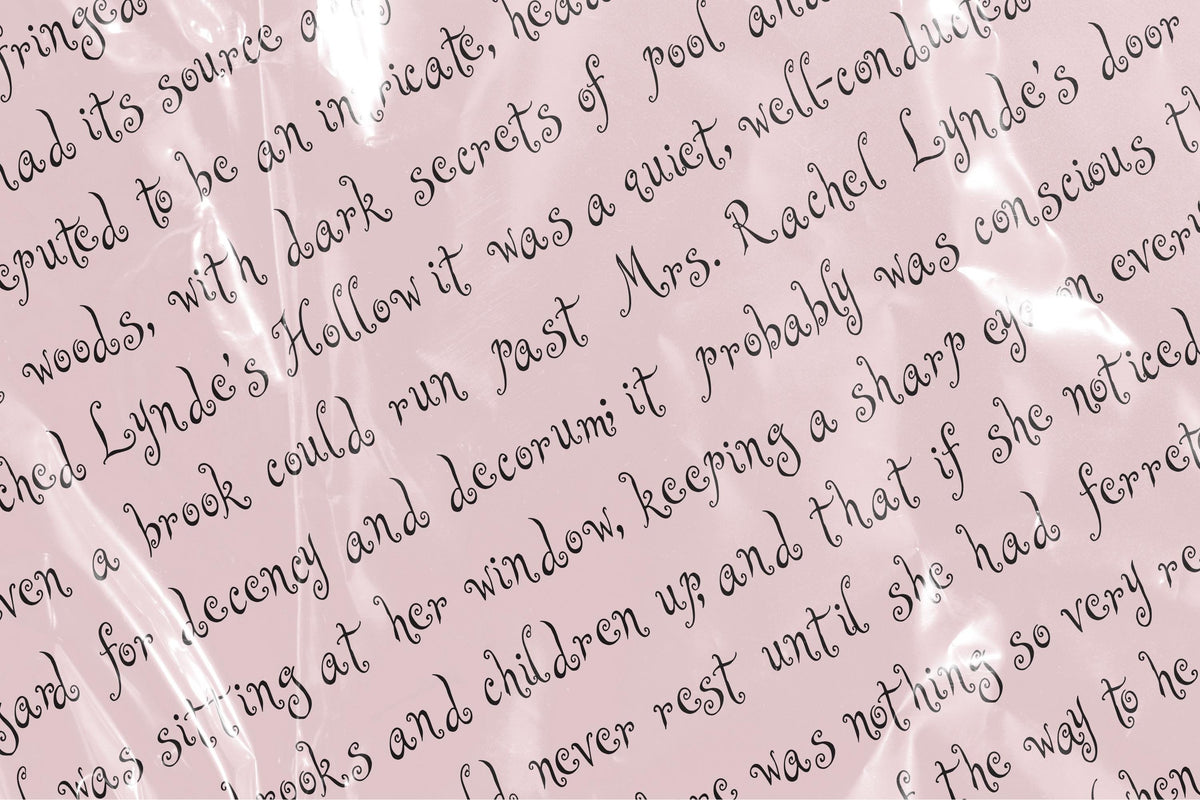 fringed
had its source
eputed to be an intricate, head
woods, with dark secrets of pool and
ched Lynde's Hollow it was a quiet, well-conducted
ven a brook could run past Mrs. Rachel Lynde's door
gard for decency and decorum; it probably was conscious th
was sitting at her window, keeping a sharp eye on every
rooks and children up, and that if she noticed
d never rest until she had ferret
was nothing so very re
f the way to he
hen